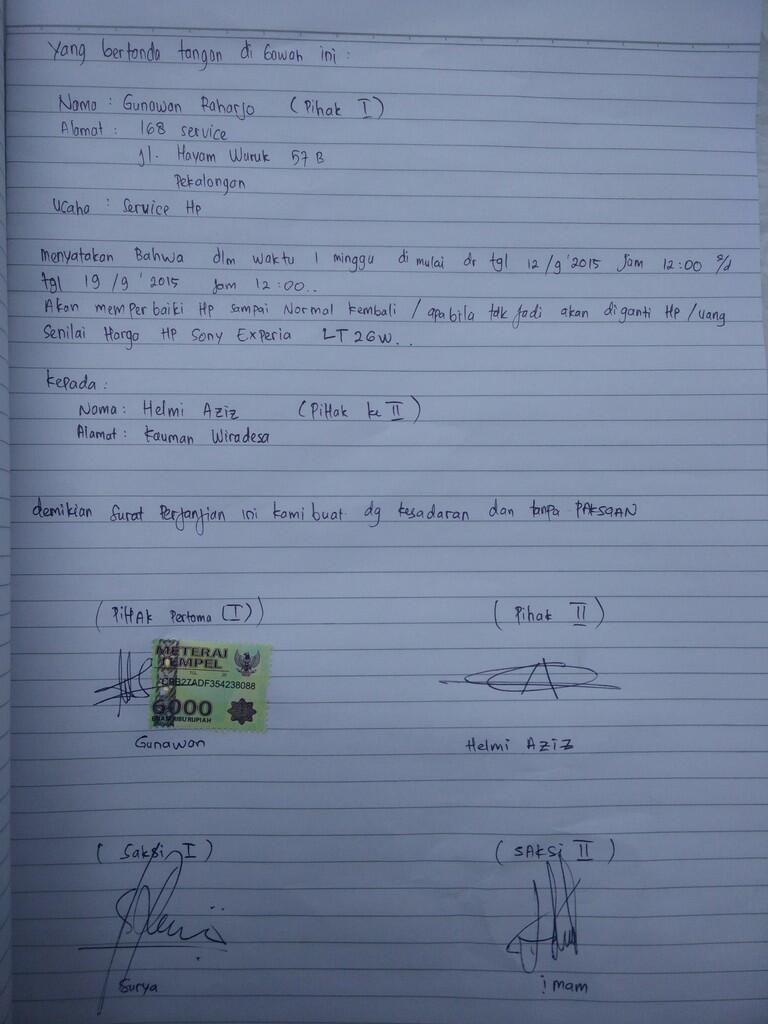 Yang bertanda tangan di bawah ini :
Nama : Gunawan Raharjo (Pihak I)
Alamat : 168 service
Jl. Hayam Wuruk 57 B
Pekalongan
Usaha : Service Hp
menyatakan Bahwa dlm waktu 1 minggu di mulai dr tgl 12/9'2015 Jam 12:00 s/d
tgl 19/9'2015 Jam 12:00..
Akan memperbaiki Hp sampai Normal kembali / apabila tdk jadi akan diganti Hp/uang
Senilai Harga HP Sony Experia LT 26W..
kepada :
Nama : Helmi Aziz (Pihak ke II)
Alamat : Kauman Wiradesa
demikian Surat Perjanjian ini kami buat dg kesadaran dan tanpa PAKSAAN
(PiHAk Pertama (I)) (Pihak II)
METERAI
TEMPEL
TGL 20
C8B27ADF354238088
6000
ENAM RIBU RUPIAH
Gunawan Helmi Aziz
(Saksi I) (SAKSi II)
Surya imam